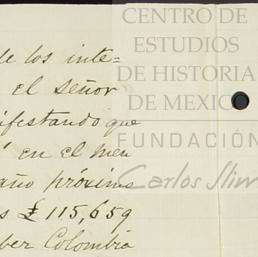 CENTRO DE
ESTUDIOS
DE HISTORIA
DE MEXICO
FUNDACIÓN
Carlos Slim
de los inte=
el señor
ifestando que
en el men
año próximo
s £ 115,659
ber Colombia